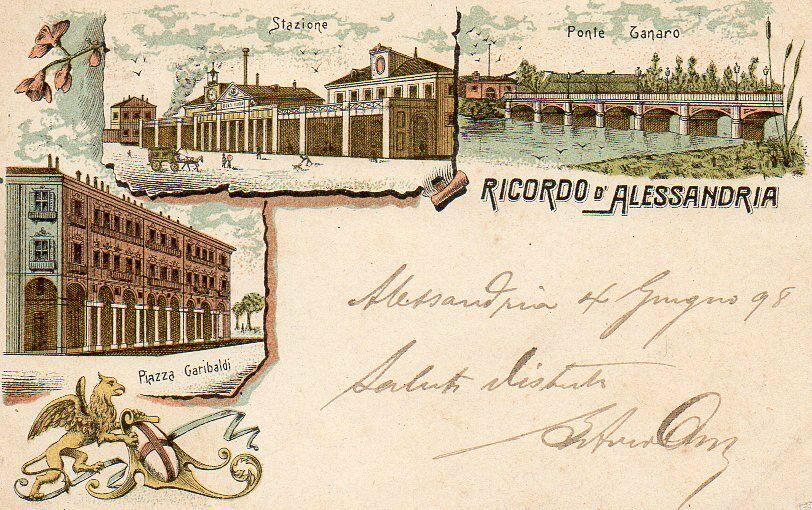 Stazione
Ponte Tanaro
RICORDO D'ALESSANDRIA
Piazza Garibaldi
Alessandria 4 Giugno 98
Saluti distinti